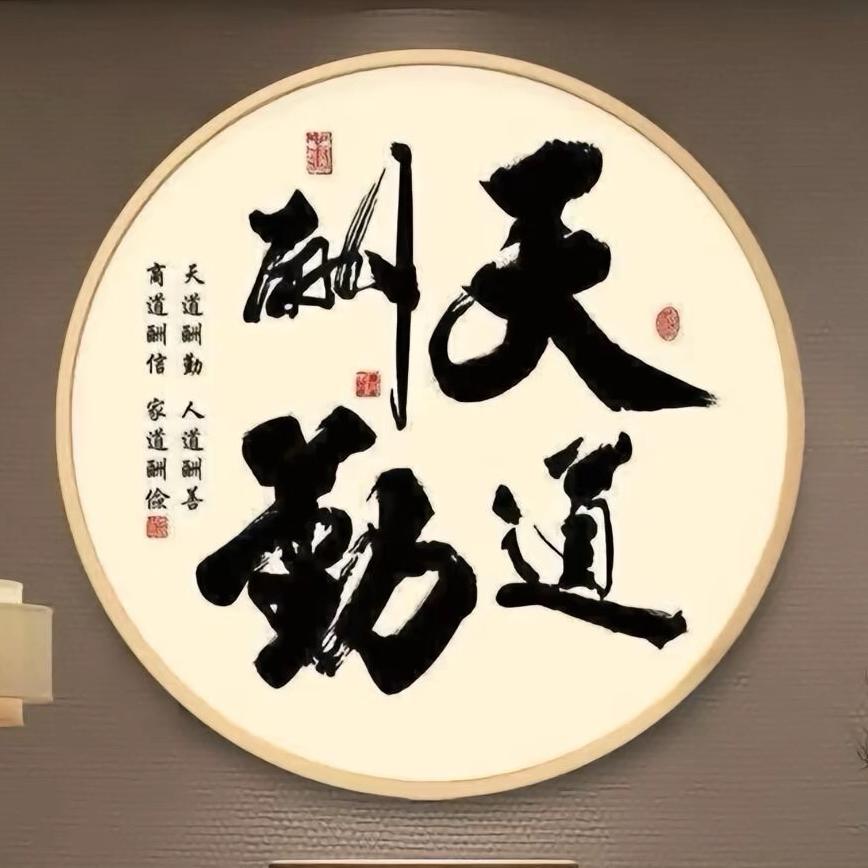 天道
酬勤
天道酬勤 人道酬善
商道酬信 家道酬俭